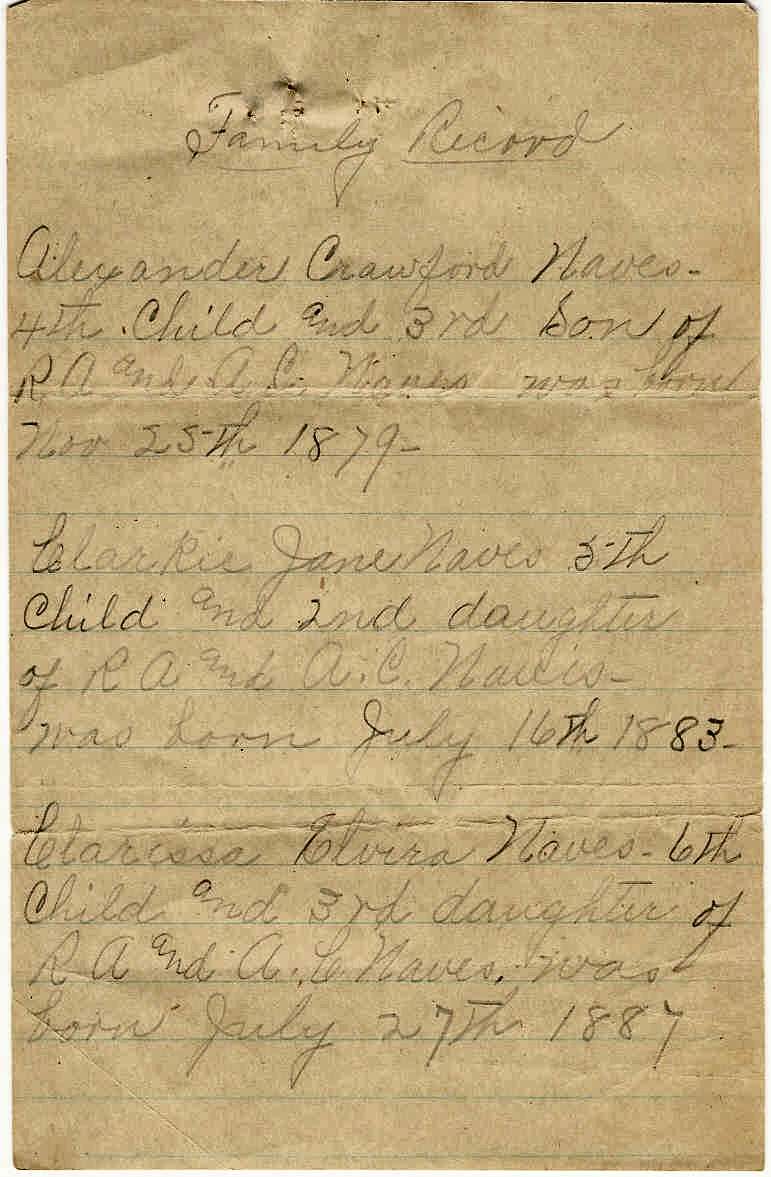 Family Record
Alexander Crawford Naves-
4th Child and 3rd Son of
R A and A C. Naves was born
Nov 25th 1879-
Clarkie Jane Naves 5th
Child and 2nd daughter
of R A and A. C. Naves-
was born July 16th 1883-
Clarissa Elvira Naves- 6th
Child and 3rd daughter of
R A and A. C Naves. was
born July 27th 1887